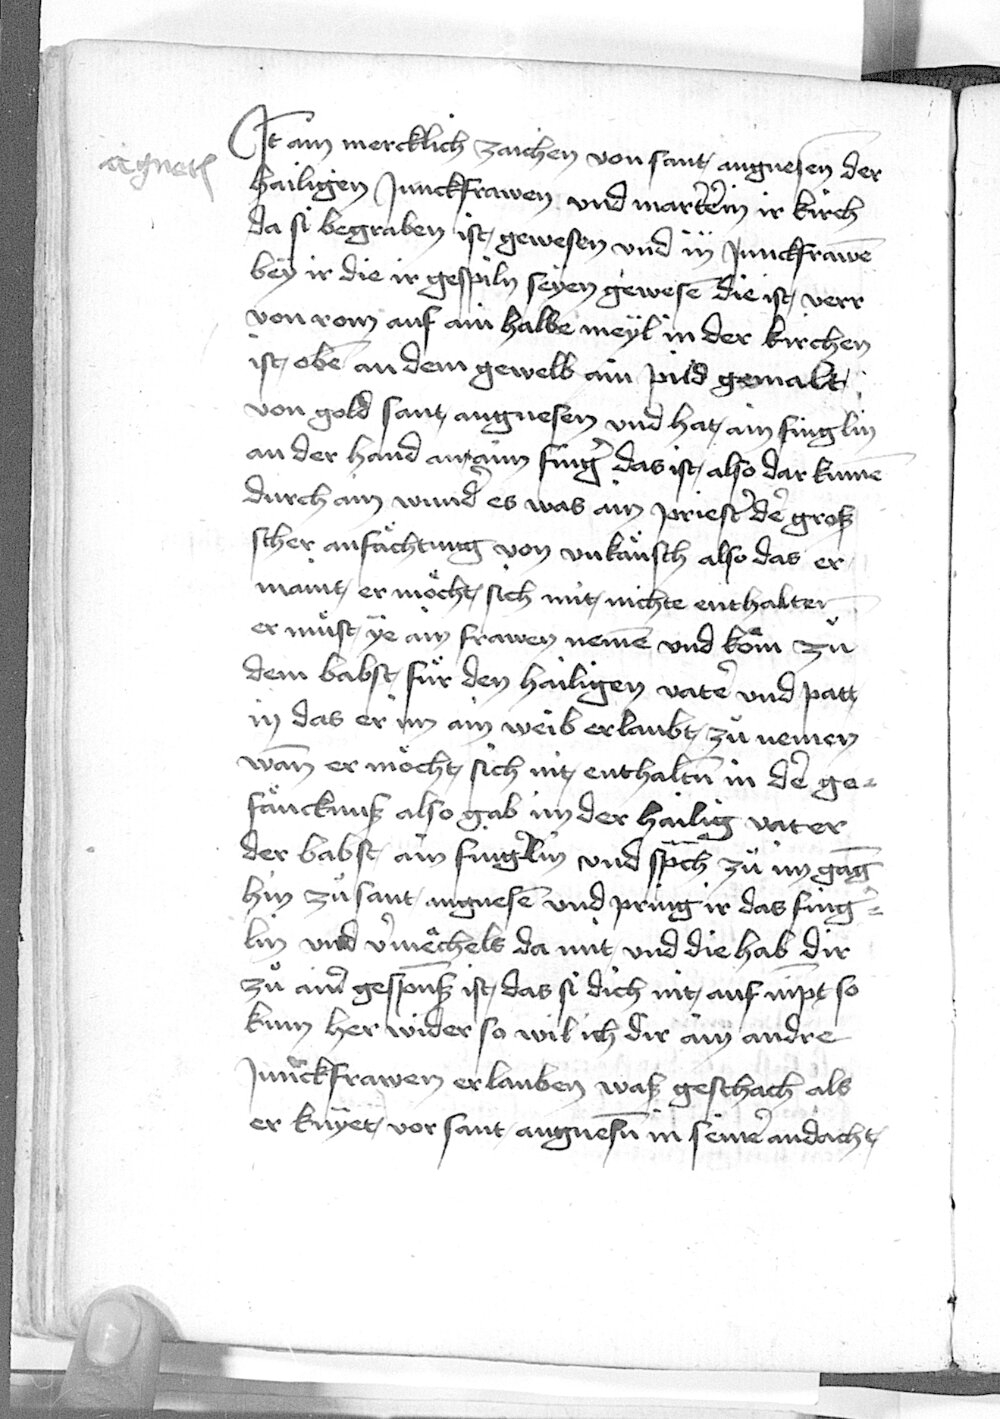 agnetis
Jt ain mercklich zaichen von sant angnesen der
hailigen Junckfrawen vnd marterin ir kirch
da si begraben ist gewesen vnd iij Junckfrawē
bey ir die ir gespiln seyen gewesē die ist verr
von rom auf ain halbe meyl in der kirchen
ist obē an dem gewelb ain pild gemalt
von gold sant angnesen vnd hat ain finglin
an der hand an aim fing̉ das ist also dar kumē
durch ain wund̉ es was ain priest̉ d̉e groß
scher anfächtung von vnkäusch also das er
maint er möcht sich mit nichte enthalten
er müst ye ain frawen nemē vnd kom zů
dem babst für den hailigen vat̉e vnd patt
in das er im ain weib erlaubt zů nemen
wan̄ er möcht sich nit enthaltn̄ in d̉e ge-
fäncknuß also gab im der hailig vater
der babst ain fingerlin vnd sp̄ch zů im gāg
hin zů sant angnesē vnd pring ir das fing̉-
lin vnd v̉mechels da mit vnd die hab dir
zů aim̄ gespunß ist das si dich nit auf nīpt so
kum her wider so wil ich dir ain andre
Junckfrawen erlauben waß geschach als
er knyet vor sant angnesn̄ in sein̉e andacht